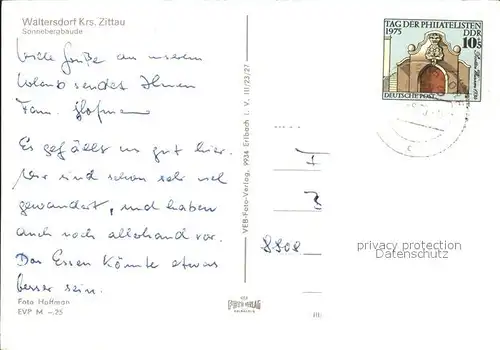 Waltersdorf Krs. Zittau
Sonnebergbaude
Viele Grüße an unserem
Urlaub sendet Ihnen
Fam. Hofmann
Es gefällt uns gut hier.
Wir sind schon sehr viel
gewandert, und haben
auch noch allerhand vor.
Das Essen könnte etwas
besser sein.
Foto Hoffman
EVP M -.25
VEB-Foto-Verlag, 9934 Erlbach i. V. III/23/27
TAG DER PHILATELISTEN
1975
DDR
10
DEUTSCHE POST
privacy protection
Datenschutz